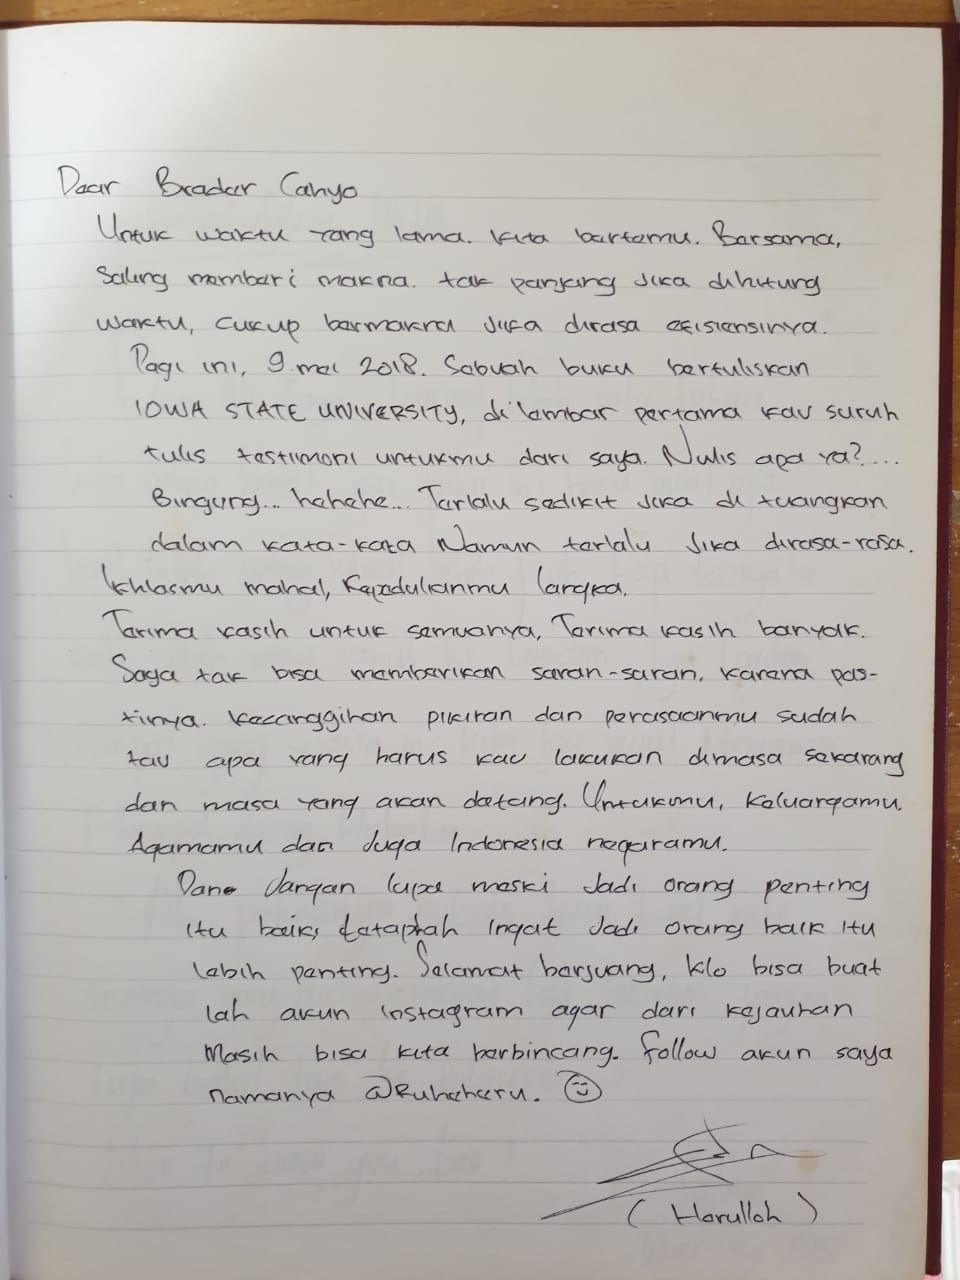 Dear Brader Cahyo
Untuk waktu yang lama. Kita bertemu. Bersama,
Saling memberi makna. tak panjang jika dihitung
waktu, cukup bermakna jika dirasa efisiensinya.
Pagi ini, 9 mei 2018. Sebuah buku bertuliskan
IOWA STATE UNIVERSITY, di lembar pertama kau suruh
tulis testimoni untukmu dari saya. Nulis apa ya?...
Bingung... hehehe... Terlalu sedikit jika di tuangkan
dalam kata-kata Namun terlalu jika dirasa-rasa.
Ikhlasmu mahal, Kepedulianmu langka.
Terima kasih untuk semuanya, Terima kasih banyak.
Saya tak bisa memberikan saran-saran, karena pas-
tinya. kecanggihan pikiran dan perasaanmu sudah
tau apa yang harus kau lakukan dimasa sekarang
dan masa yang akan datang. Untukmu, keluargamu,
Agamamu dan Juga Indonesia negaramu.
Dan Jangan lupa meski Jadi orang penting
itu baik, tetaplah Ingat Jadi orang baik itu
lebih penting. Selamat berjuang, klo bisa buat
lah akun instagram agar dari kejauhan
Masih bisa kita berbincang. follow akun saya
namanya @Ruheheru. ☺
( Herulloh )